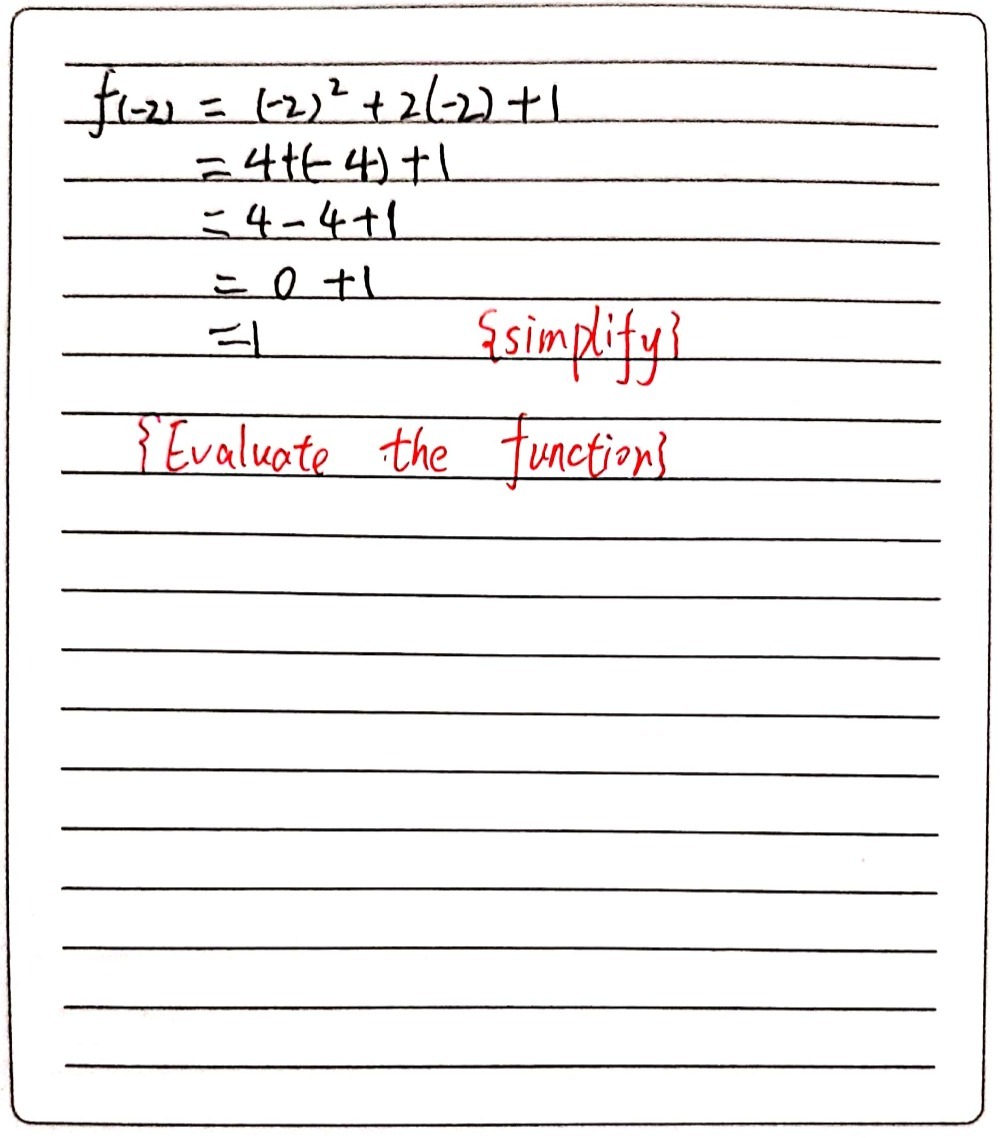 f(-2) = (-2)² + 2(-2) + 1
= 4+(-4) + 1
= 4 - 4 + 1
= 0 + 1
= 1 {simplify}
{Evaluate the function}